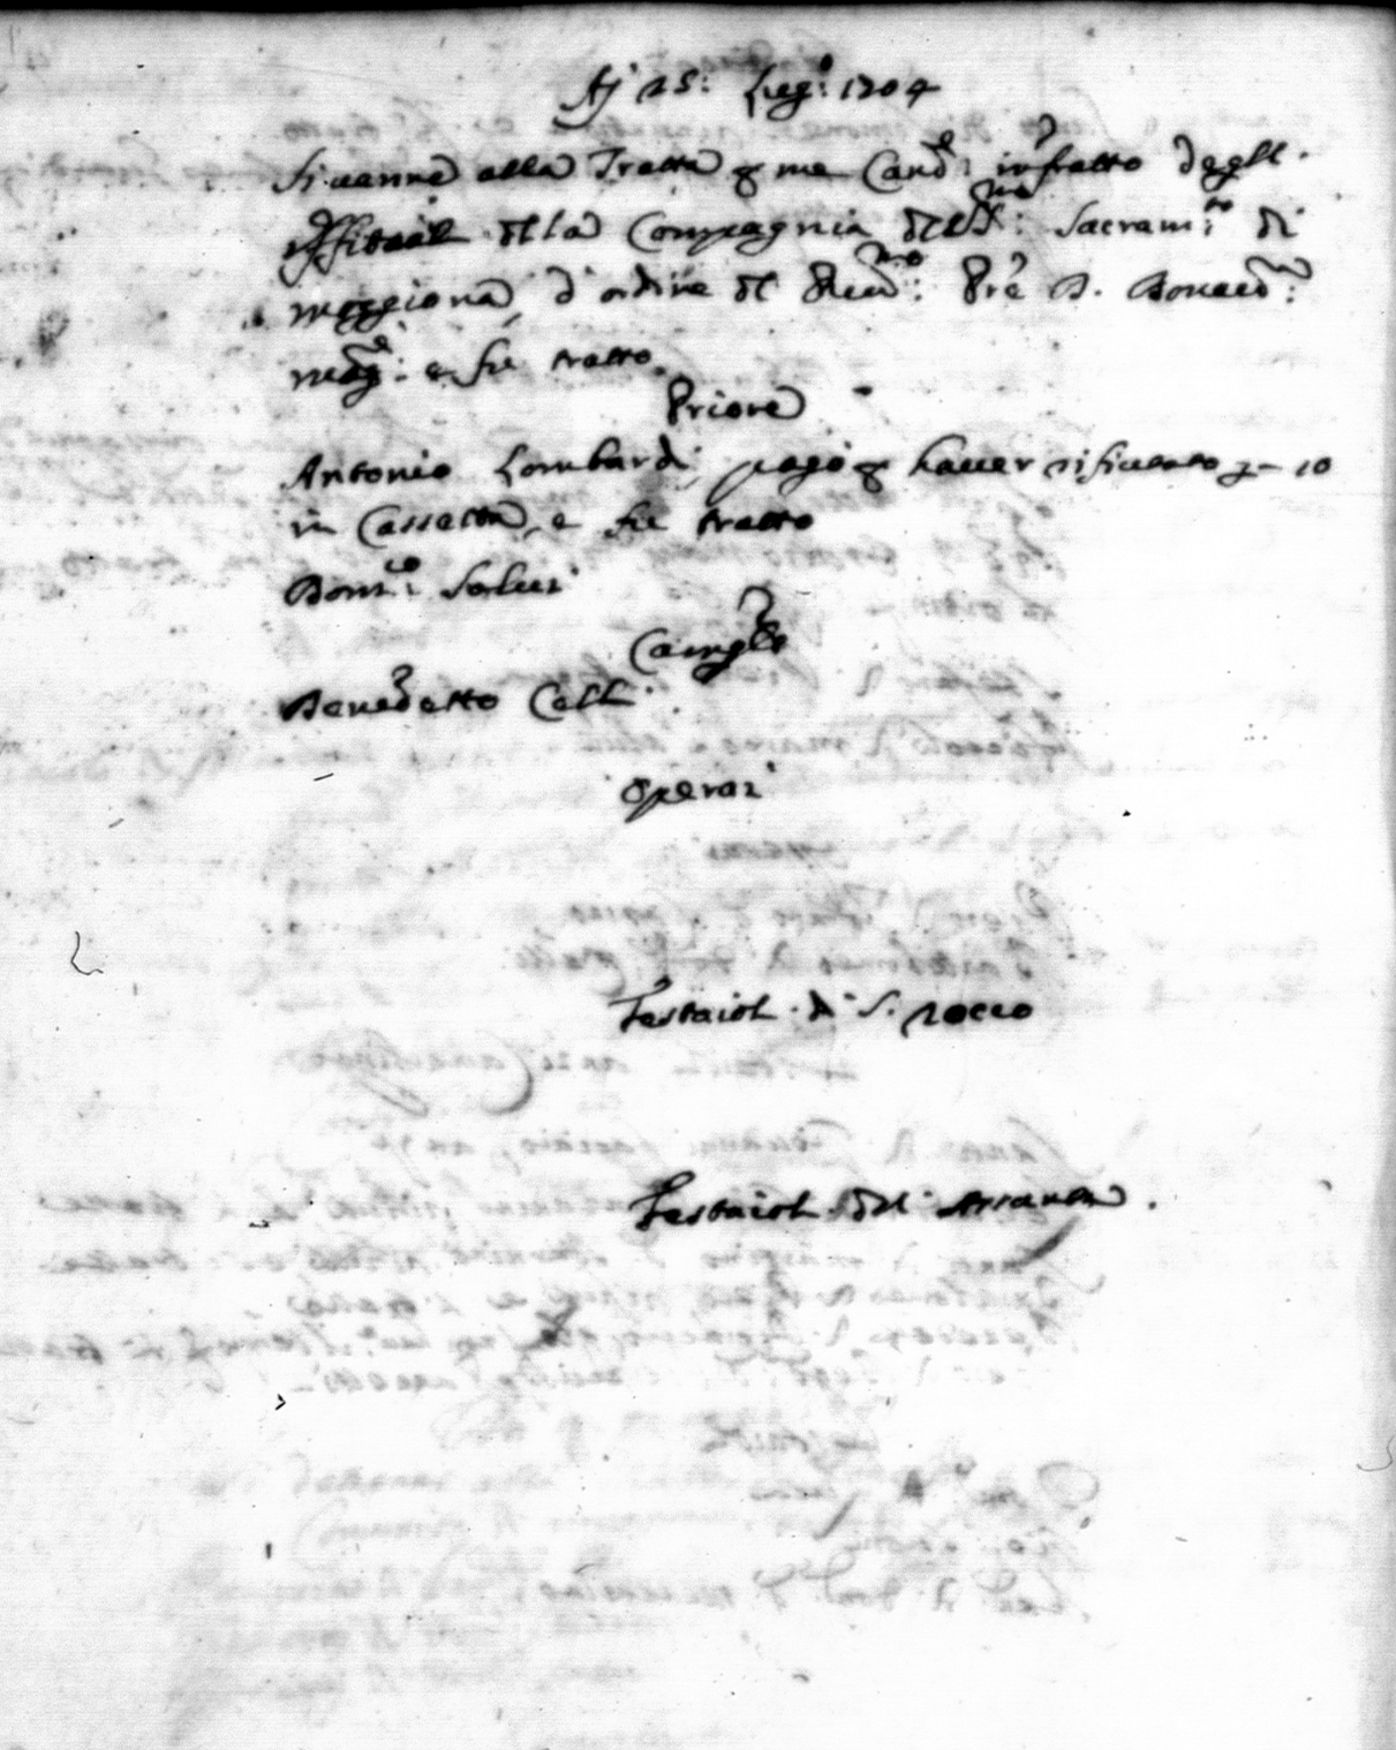 Aj 25: Lug:o 1704
Si venne alla Tratta p me Canc:e infratto degli
Uffitiali della Compagnia del SS:mo Sacram:to di
moggiona, d'ordine del Rev:mo Pre D.
e fu tratto
Priore
Antonio Lombardi pagò p haver rifiutato 10
in Cassetta, e fu tratto
Dom:co Salvi
Camglo
Benedetto Celli
Operai
Festaioli di S. Rocco
Festaioli del